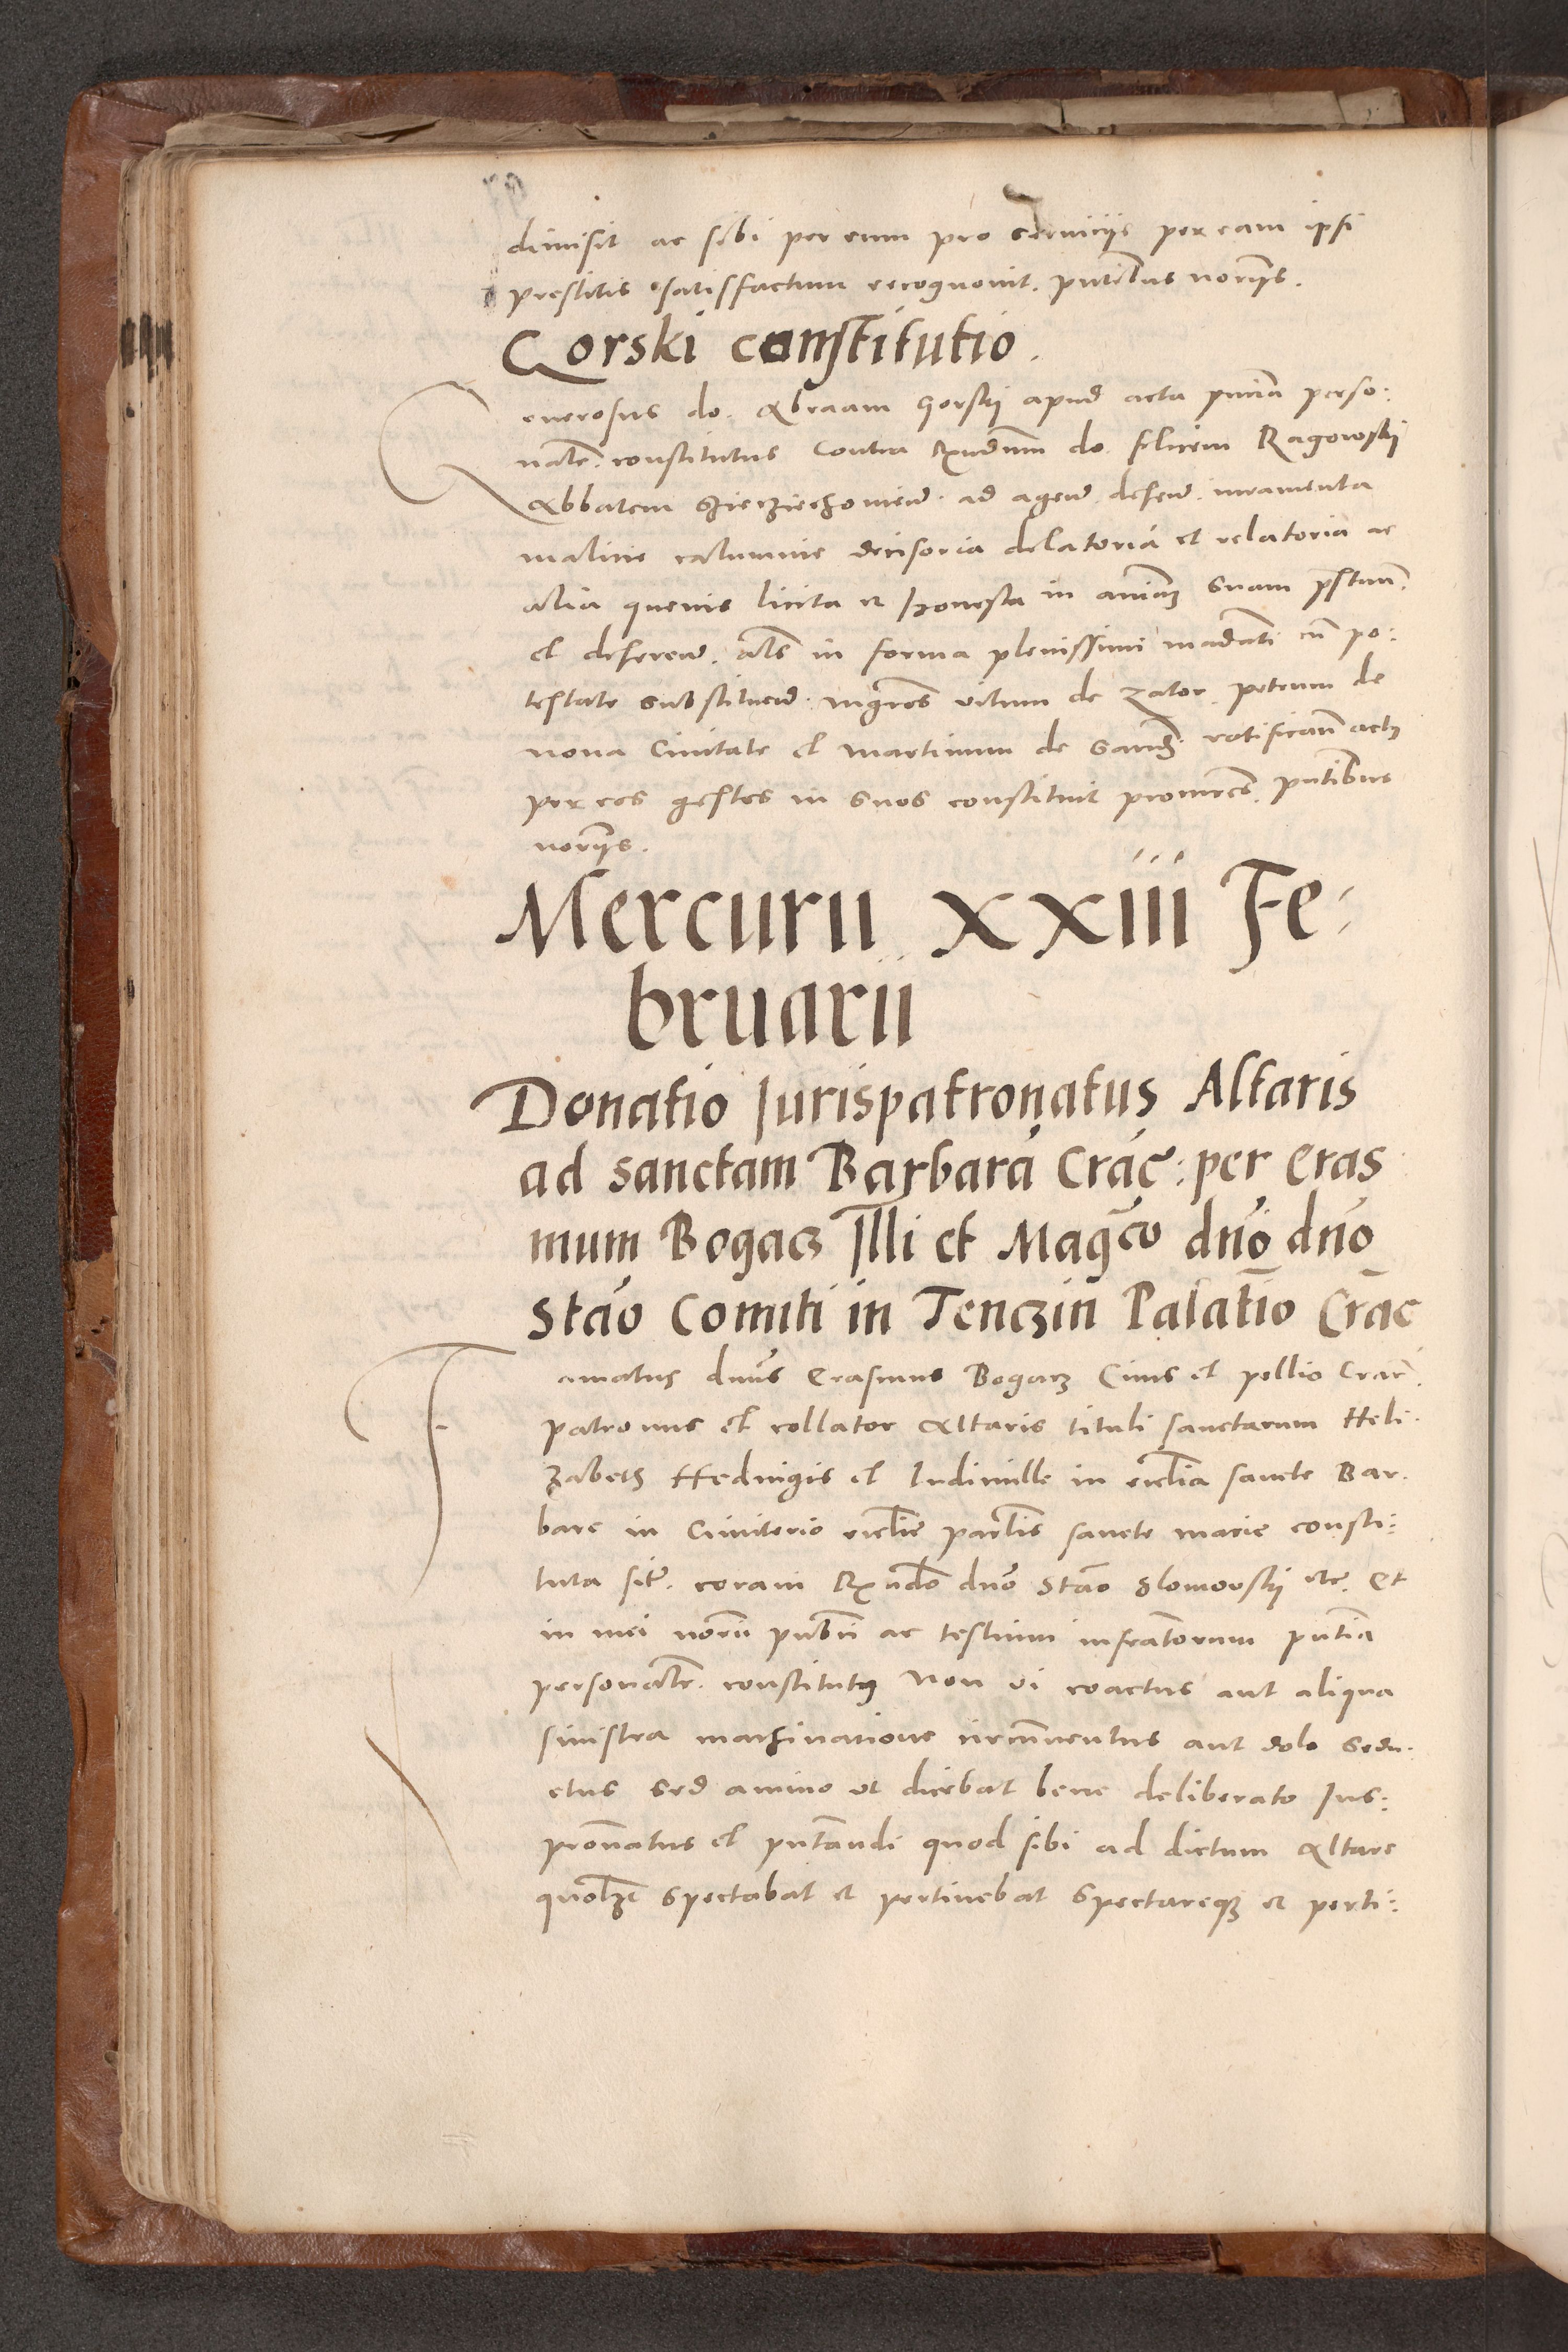 dimisit ac sibi per eum pro serviciis per eam ipsi
prestitis satisfactum recognovit. pntibus noriis.
Gorski constitutio.
Generosus do. Abraam Gorskij apud acta pnia perso:
nalr. constitutus contra Rxndum do. felicem Ragowskij
Abbatem ad agend. defend. iuramenta
malicie calumnie decisoria delatoria et relatoria ac
alia quevis licita et honesta in aniam suam pstand.
et deferend. als in forma plenissimi madati cu po:
testate substituend. mgros vitum de Zator. petrum de
nova Civitate et Martinum de Sand. ratificand actus
per eos gestos in suos constituit procures. pntibus
noriis.
Mercurii xxiii Fe:
bruarii
Donatio Iurispatronatus Altaris
ad sanctam Barbara Crac: per Eras
mum Bogacz Illi et Magco dno dno
Stao Comiti in Tenczin Palatio Crac
Famatus dnus Erasmus Bogacz Civis et pellio Crac.
patronus et collator Altaris tituli sanctarum Heli:
zabeth Hedvigis et Ludimille in ecclia sancte Bar.
bare in Cimiterio ecclie parlis sancte Marie consti:
tuta sit. coram Rxndo dno Stao Slomovskij etc. Et
in mei norii publi ac testium infratorum pntia
personalr. constitutus non vi coactus aut aliqua
sinistra machinatione circumventus aut dolo sedu:
ctus sed animo ut dicebat bene deliberato Ius:
pronatus et pntandi quod sibi ad dictum Altare
quolzet spectabat et pertinebat spectareque et perti: